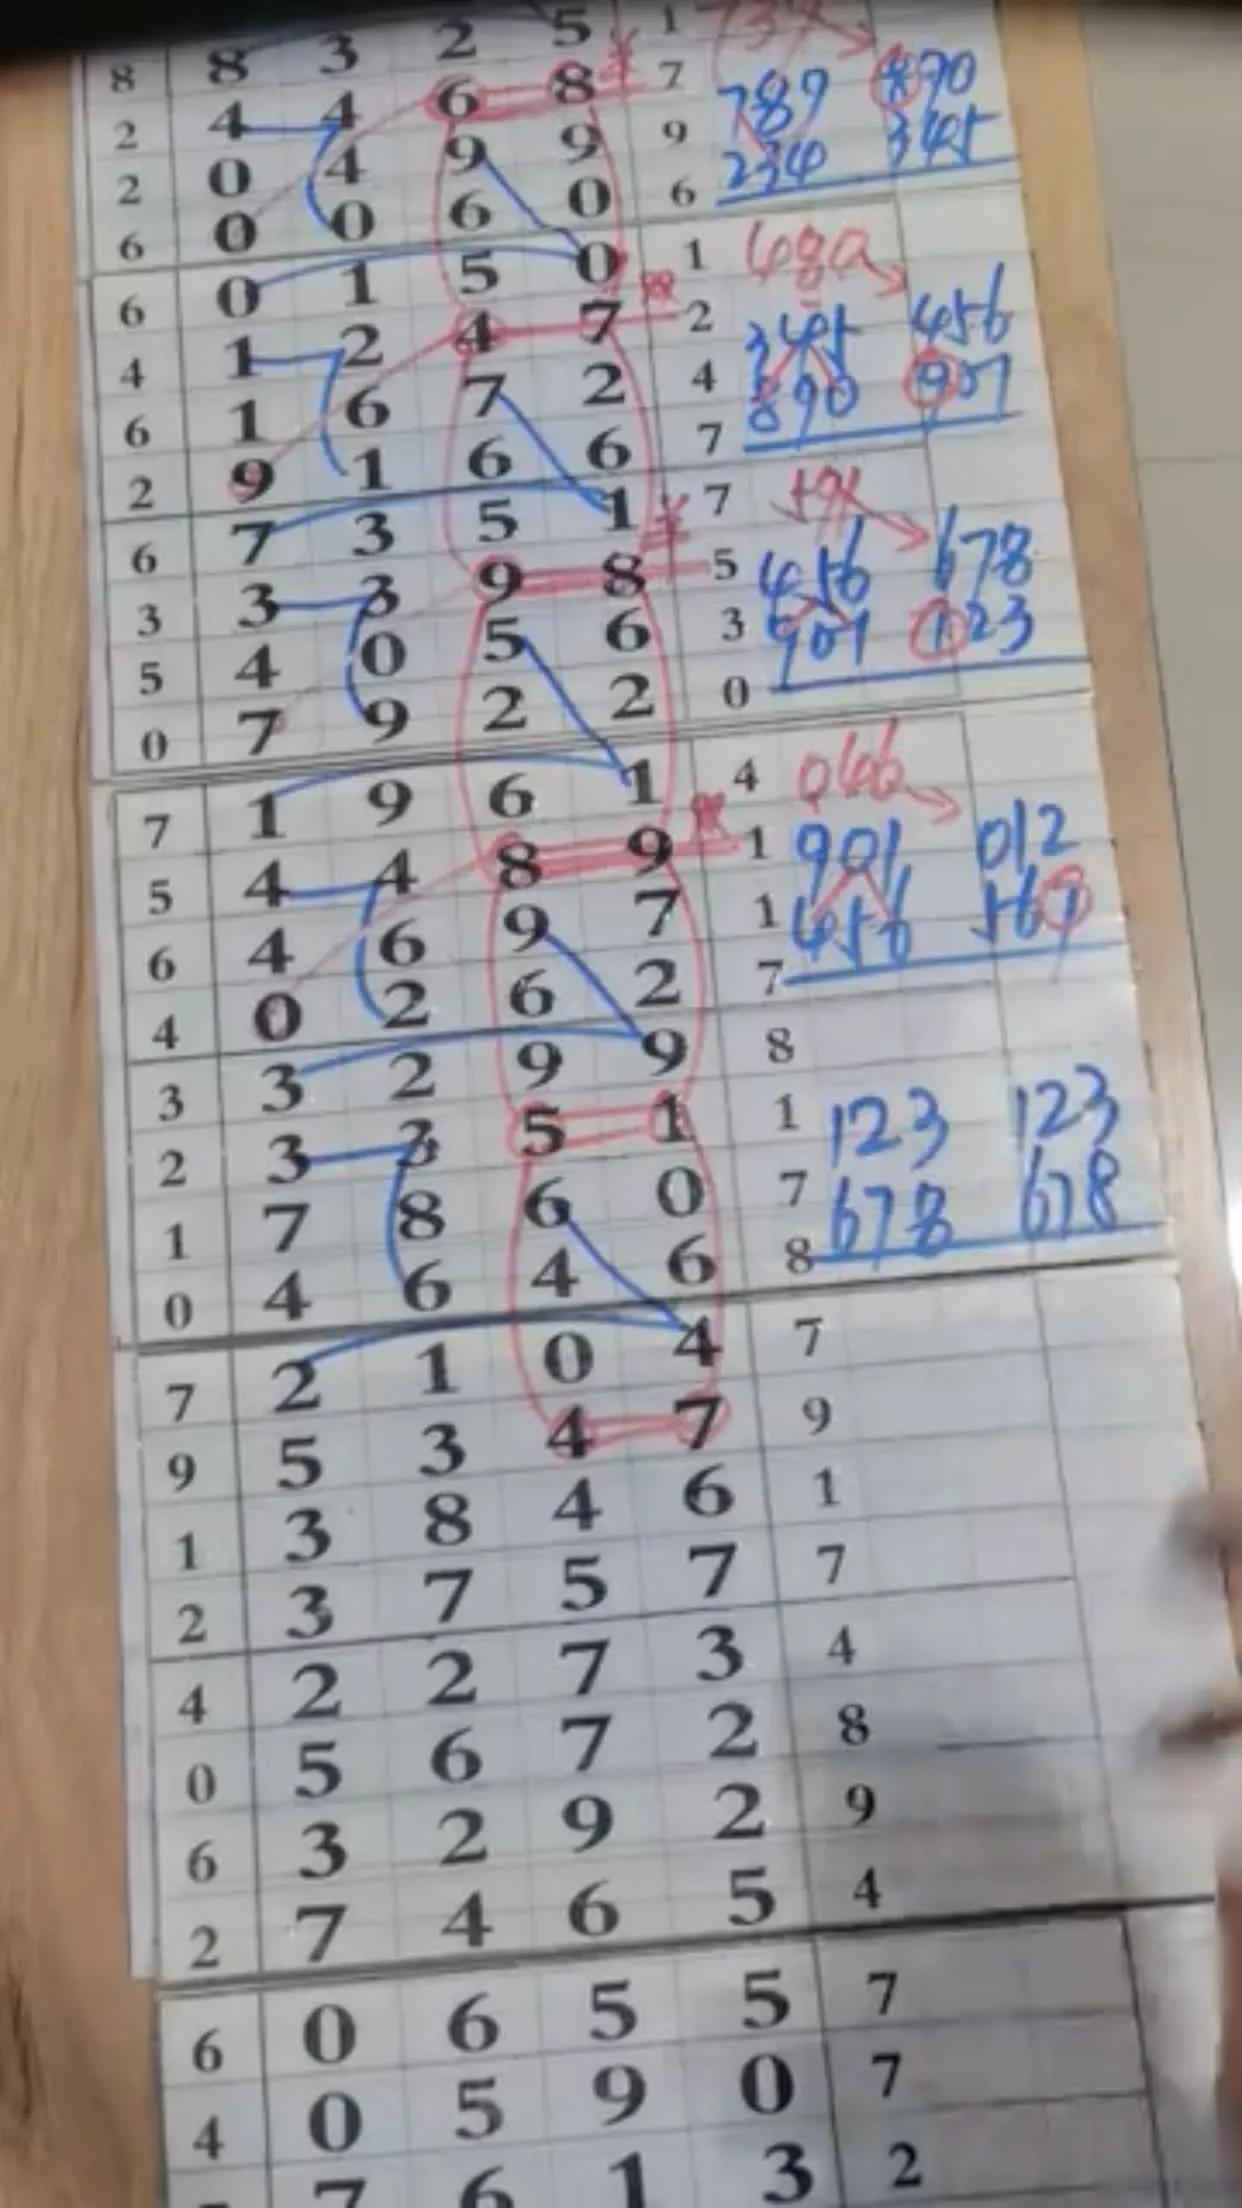 8 3 2 5 1
8 4 4 6 8 7 789 890
2 0 4 9 9 9 234 345
2 0 0 6 0 6
6 0 1 5 0 1
6 1 2 4 7 2 345 456
4 1 6 7 2 4 890 901
6 9 1 6 6 7
2 7 3 5 1 7
6 3 3 9 8 5 456 678
3 4 0 5 6 3 901 123
5 7 9 2 2 0
0
7 1 9 6 1 4 046
5 4 4 8 9 1 901 012
6 4 6 9 7 1 456 567
4 0 2 6 2 7
3 3 2 9 9 8
2 3 3 5 1 1 123 123
1 7 8 6 0 7 678 678
0 4 6 4 6 8
7 2 1 0 4 7
9 5 3 4 7 9
1 3 8 4 6 1
2 3 7 5 7 7
4 2 2 7 3 4
0 5 6 7 2 8
6 3 2 9 2 9
2 7 4 6 5 4
6 0 6 5 5 7
4 0 5 9 0 7
7 6 1 3 2